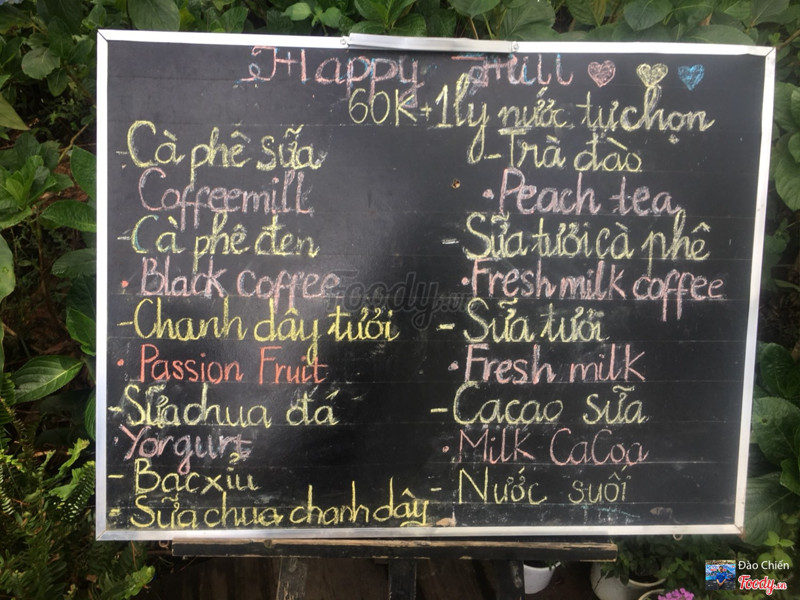 Happy Hill
60K+1ly nước tự chọn
-Cà phê sữa
Coffeemilt
-Cà phê đen
• Black coffee
-Chanh dây tươi
• Passion Fruit
-Sữa chua đá
• Yorgurt
- Bạc xỉu
- Sữa chua chanh dây
-Trà đào
• Peach tea
-Sữa tươi cà phê
• Fresh milk coffee
- Sữa tươi
• Fresh milk
-Cacao sữa
• Milk CaCoa
- Nước suối
Foody.vn
Đào Chiến
Foody.vn